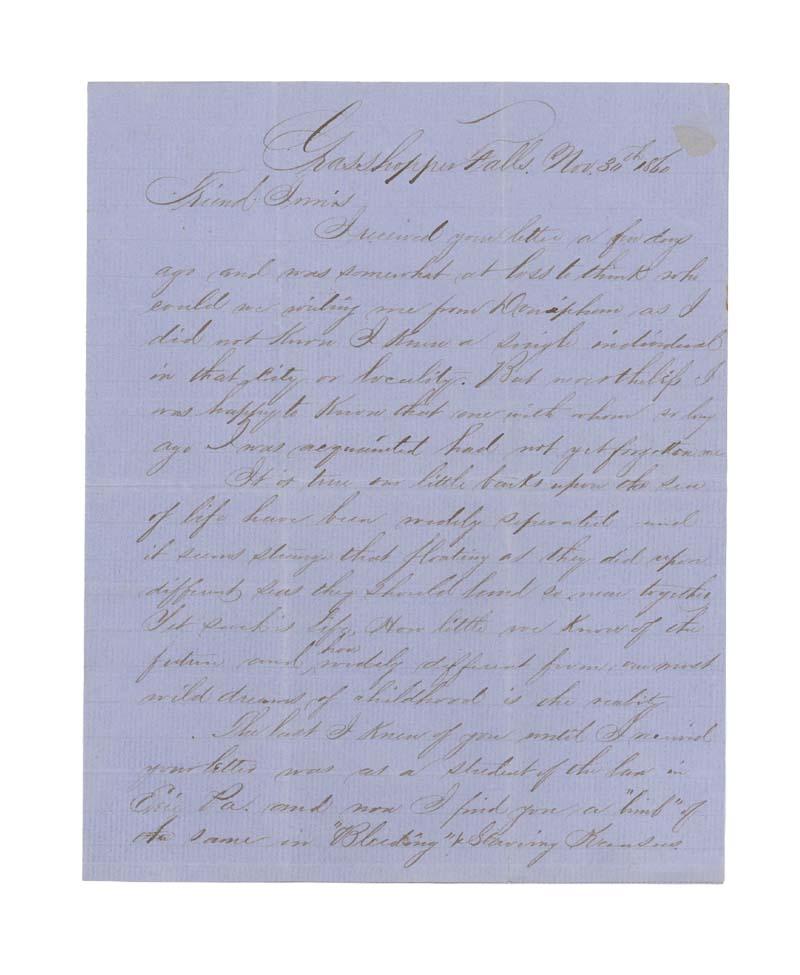 Grasshopper Falls. Nov. 30th 1860
Friend Irwin
I received your letter a few days
ago and was somewhat at loss to think who
could be writing me from Doniphan as I
did not know I knew a single individual
in that city or locality. But nevertheless I
was happy to know that one with whom so long
ago I was acquainted had not yet forgotten me
It is true our little barks upon the sea
of life have been widely seperated and
it seems strange that floating as they did upon
different seas they should land so near together
Yet such is life. How little we know of the
future and how widely different from our most
wild dreams of childhood is the reality
The last I knew of you until I received
your letter was as a student of the law in
Erie Pa. and now I find you a "limb" of
the same in "Bleeding" & Starving Kansas.